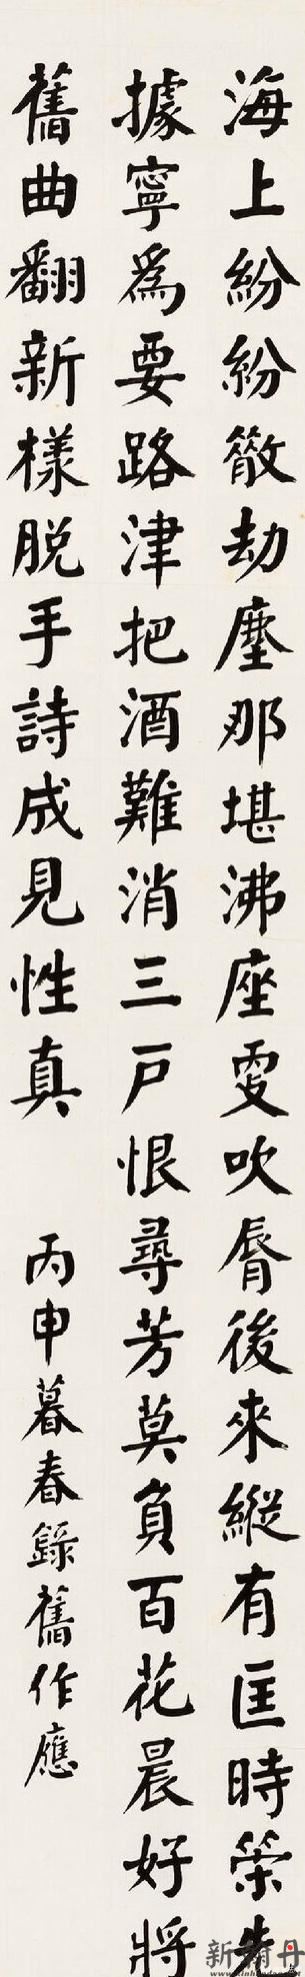 海上紛紛散劫塵那堪沸座更吹脣後來縱有匡時策先
據寧為要路津把酒難消三戶恨尋芳莫負百花晨好將
舊曲翻新樣脫手詩成見性真
丙申暮春錄舊作應
新翰丹